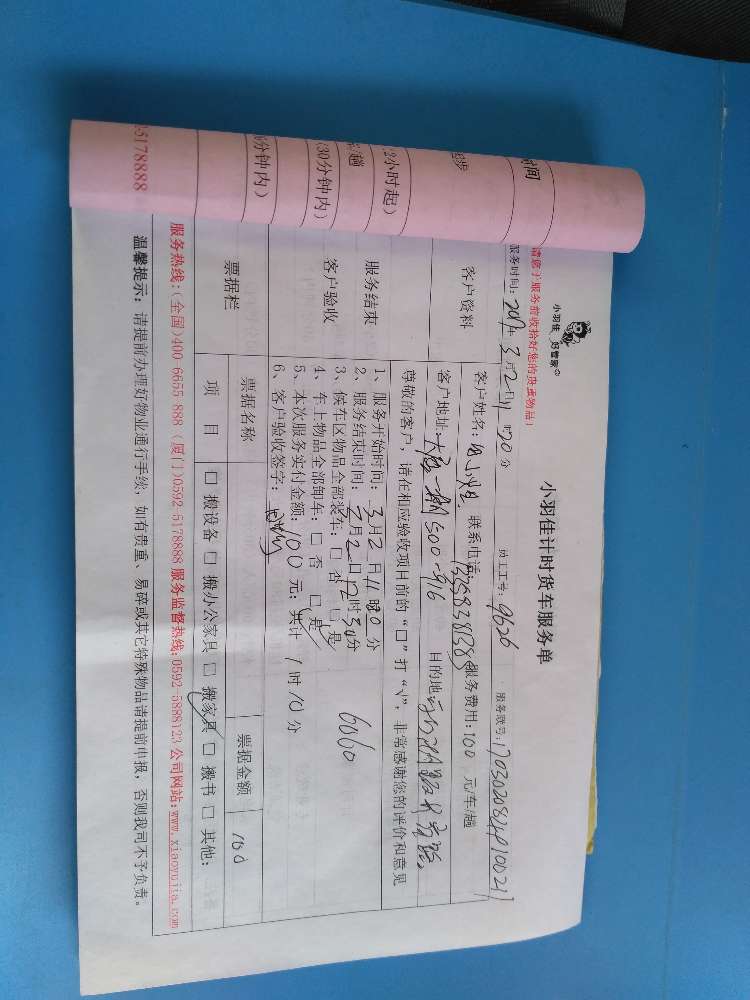 小羽佳 好管家
小羽佳计时货车服务单
请您于服务前收拾好您的贵重物品!
服务时间: 2017年 3月2日11时20分 员工工号: 9626 服务联号: 170302084010021
客户资料
客户姓名: 联系电话: 服务费用: 100 元/车/趟
客户地址: 500-916 目的地:
尊敬的客户,请在相应验收项目前的“□”打“√”,非常感谢您的评价和意见
服务结束
客户验收
1、服务开始时间: 3月2日11时20分
2、服务结束时间: 3月2日12时30分
3、候车区物品全部装车: □ 否 □ 是
4、车上物品全部卸车: □ 否 □ 是
6060
5、本次服务实付金额: 100 元; 共计 1 时 10 分
6、客户验收签字:
票据栏
票据名称 票据金额 100
项 目 □ 搬设备 □ 搬办公家具 □ 搬家具 □ 搬书 □ 其他:
服务热线:(全国)400 6655 888 (厦门)0592 5178888 服务监督热线:0592-5888123 公司网站:www.xiaoyujia.com
温馨提示: 请提前办理好物业通行手续, 如有贵重、易碎或其它特殊物品请提前申报, 否则我司不予负责。
时间
起步
2小时起)
/趟
30分钟内)
分钟内)
5178888